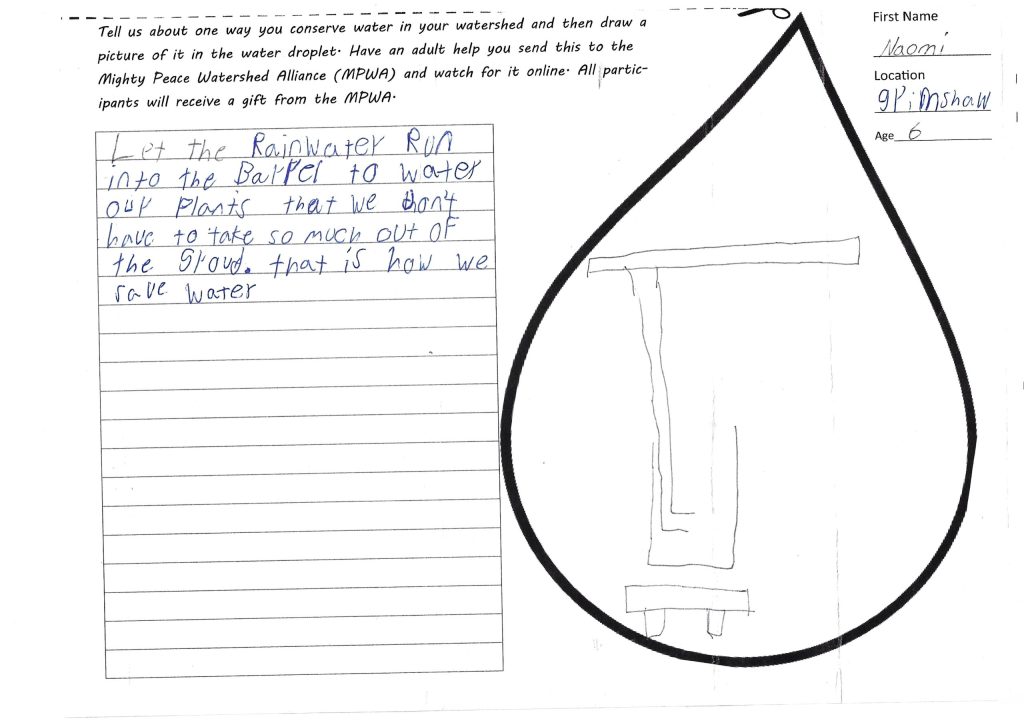 Tell us about one way you conserve water in your watershed and then draw a
picture of it in the water droplet. Have an adult help you send this to the
Mighty Peace Watershed Alliance (MPWA) and watch for it online. All partic-
ipants will receive a gift from the MPWA.
First Name
Naomi
Location
grimshaw
Age 6
Let the Rainwater Run
into the Barrel to water
our Plants that we don't
have to take so much out of
the groud. that is how we
save water